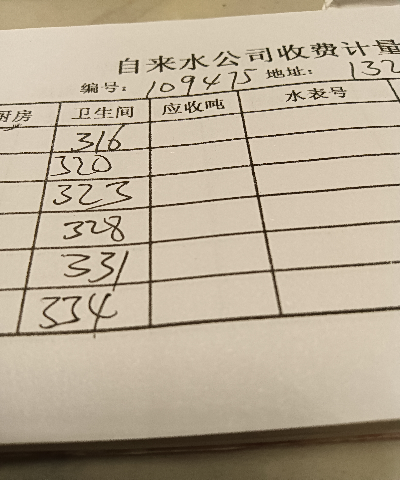 自来水公司收费计量
编号: 109475 地址: 132
厨房 卫生间 应收吨 水表号
316
320
323
328
331
334